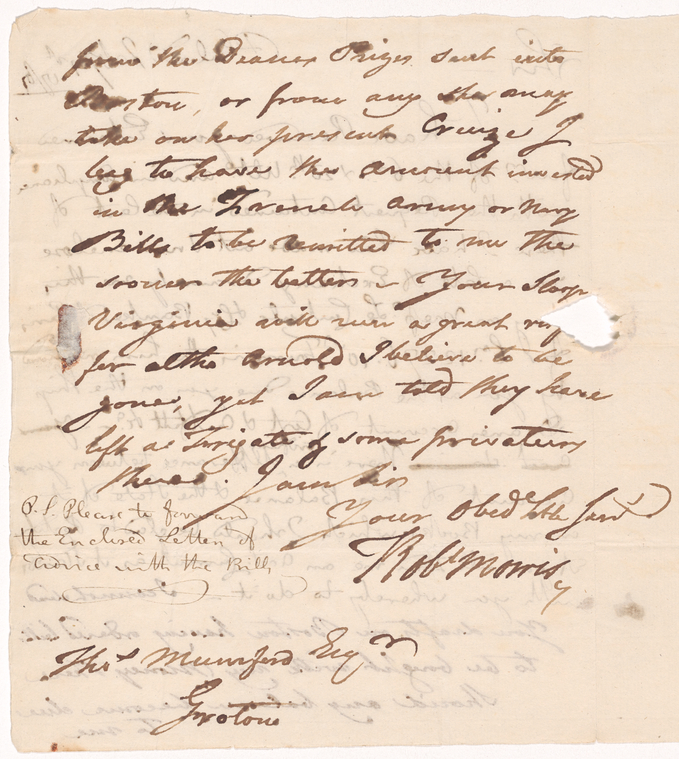 from the Deanes Prizes sent into
Boston, or from any she may
take on her present Cruize I
beg to have the amount invested
in the French Army or Navy
Bills to be remitted to me the
sooner the better. Your Sloop
Virginia will run a great
for altho Arnold I believe to be
gone, yet I am told they have
left a Frigate & some privateers
there. I am Sir
Your Obed. hble Serv.t
Rob.t Morris
P. S. Please to forward
the Enclosed Letter of
Advice with the Bills
Tho.s Mumford Esq.r
Groton